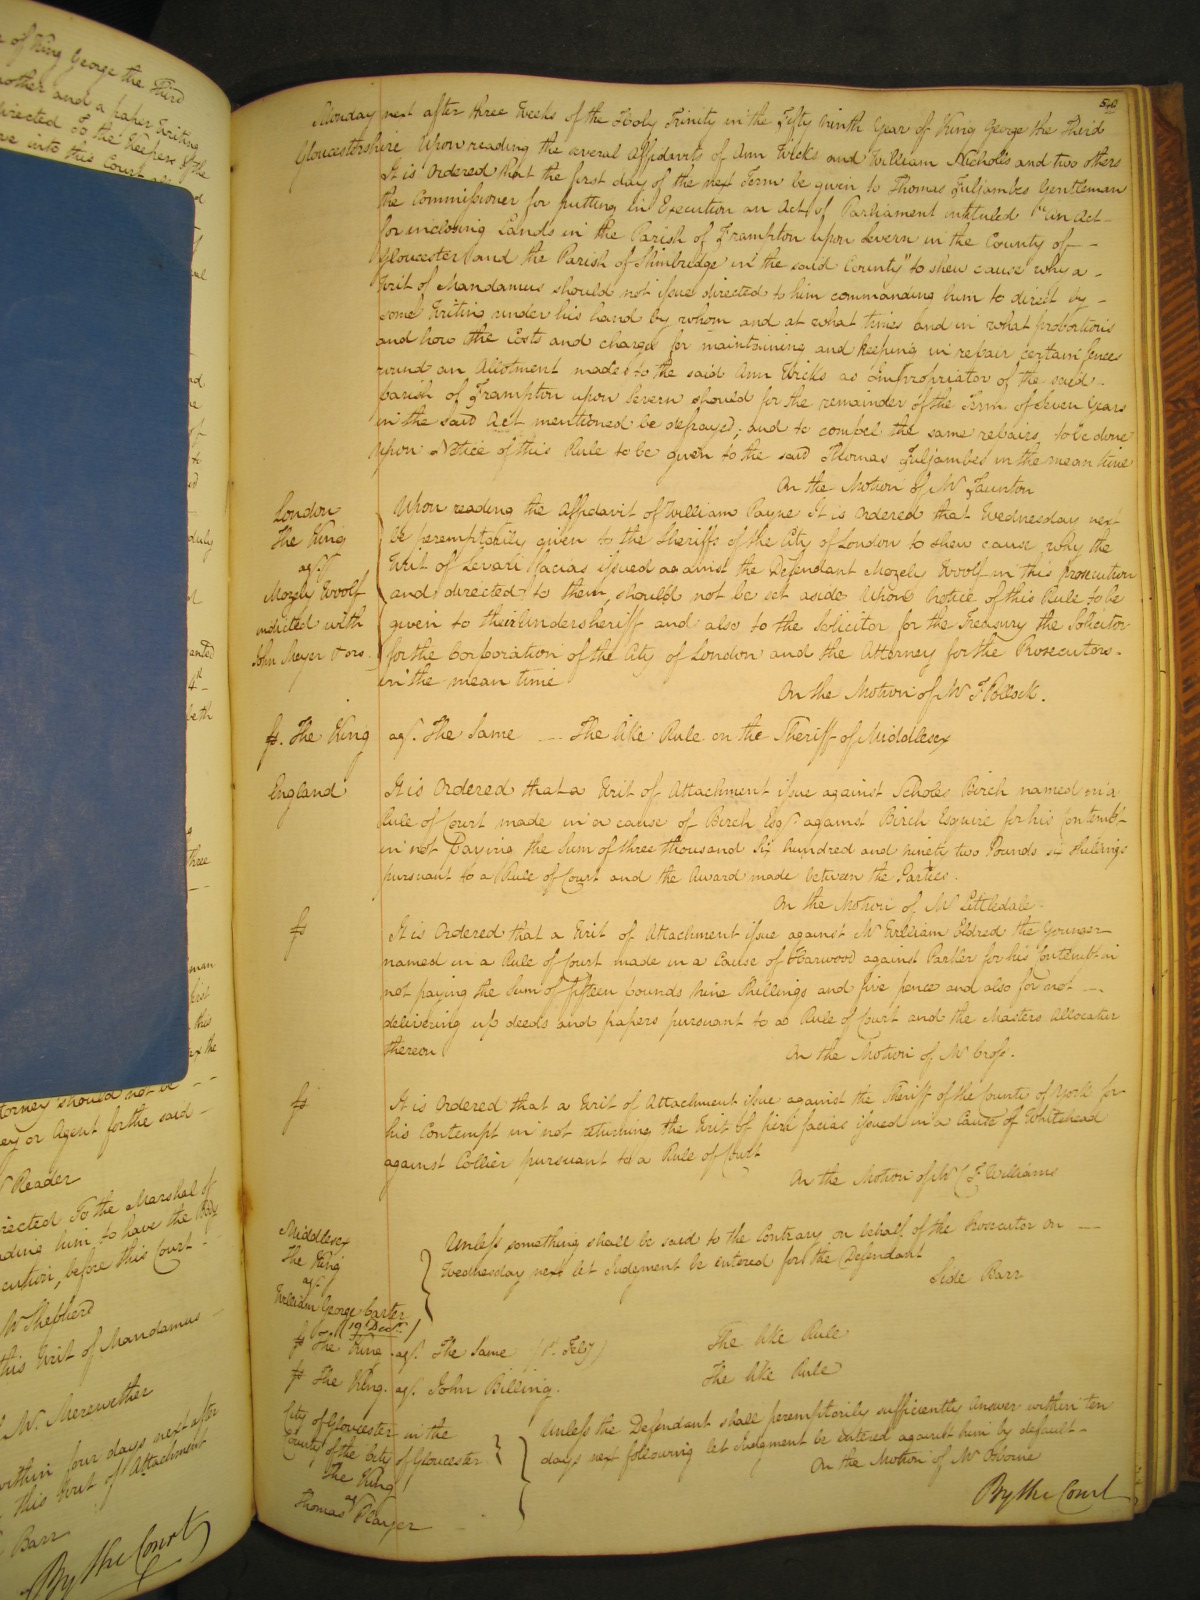 of King George the Third
another and a paper writing
directed To the Keepers of the
into this Court
duly
4th
three
man
his
this
the
Attorney should not be
or Agent for the said
Mr Reader
directed To the Marshal of
commanding him to have the Body
before this Court
Mr Shepherd
this Writ of Mandamus
Mr. Merewether
within four days next after
this Writ of Attachment
Barr
By the Court
Monday next after three Weeks of the Holy Trinity in the Fifty Ninth Year of King George the Third
Gloucestershire Upon reading the several Affidavits of Ann Wicks and William Nicholls and two others
It is Ordered that the first day of the next Term be given to Thomas Fuljambes Gentleman
the Commissioner for putting in Execution an Act of Parliament intituled "An Act
for inclosing Lands in the Parish of Frampton upon Severn in the County of
Gloucester and the Parish of Slimbridge in the said County" to shew cause why a
Writ of Mandamus should not issue directed to him commanding him to direct by
some Writing under his hand by whom and at what times and in what proportions
and how the Costs and charges for maintaining and keeping in repair certain fences
round an Allotment made to the said Ann Wicks as Impropriator of the said
parish of Frampton upon Severn should for the remainder of the Term of Seven Years
in the said Act mentioned be defrayed; and to compel the same repairs to be done
Upon Notice of this Rule to be given to the said Thomas Fuljambes in the mean time
On the Motion of Mr Taunton
London
The King
agst
Mozely Woolf
indicted with
John Meyer & ors
Upon reading the Affidavit of William Payne It is Ordered that Wednesday next
be peremptorily given to the Sheriffs of the City of London to shew cause why the
Writ of Levari facias issued against the Defendant Mozely Woolf in this prosecution
and directed to them, should not be set aside Upon Notice of this Rule to be
given to their Undersheriff and also to the Solicitor for the Treasury the Solicitor
for the Corporation of the City of London and the Attorney for the Prosecutors
in the mean time
On the Motion of Mr F Pollock.
fs. The King agst. The Same The like Rule on the Sheriff of Middlesex
England It is Ordered that a Writ of Attachment issue against Scholes Birch named in a
Rule of Court made in a cause of Birch Esqr against Birch Esquire for his Contempt
in not Paying the Sum of three thousand six hundred and ninety two Pounds six shillings
pursuant to a Rule of Court and the Award made between the Parties.
On the Motion of Mr Littledale.
fs It is Ordered that a Writ of Attachment issue against Mr William Eldred the Younger
named in a Rule of Court made in a Cause of Harwood against Parker for his Contempt in
not paying the Sum of fifteen pounds Nine Shillings and five pence and also for not
delivering up deeds and papers pursuant to a Rule of Court and the Masters Allocatur
thereon
On the Motion of Mr Cross.
fs It is Ordered that a Writ of Attachment issue against the Sheriff of the County of York for
his Contempt in not returning the Writ of fieri facias issued in a Cause of Whitehead
against Collier pursuant to a Rule of Court
On the Motion of Mr C F Williams
Middlesex
The King
agst
William George Carter
(19 Decr)
Unless something shall be said to the Contrary on behalf of the Prosecutor on
Wednesday next let Judgement be entered for the Defendant
Side Barr
fs The King agst. The Same (1st Feby) The like Rule
fs The King. agst. John Billing. The like Rule
City of Gloucester in the
County of the City of Gloucester
The King
agst
Thomas Player
Unless the Defendant shall peremptorily sufficiently answer within ten
days next following let Judgment be entered against him by default
On the Motion of Mr Osborne
By the Court